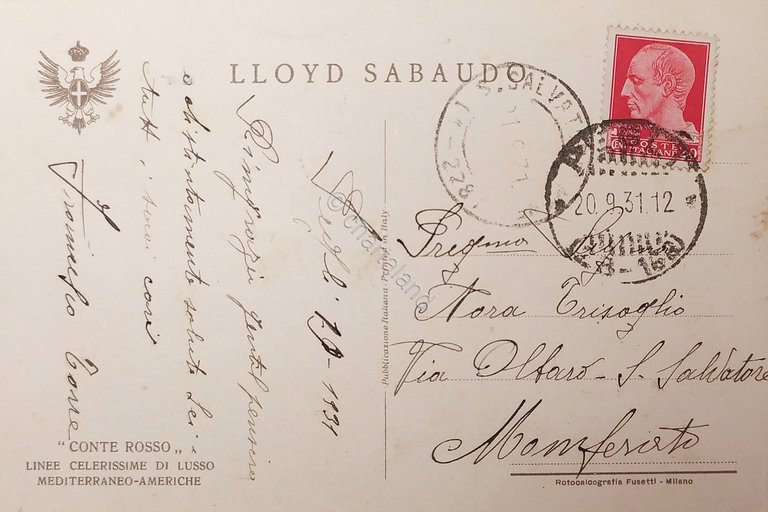 LLOYD SABAUDO
20.9.31.12
POSTE
ITALIANE
1931
Ringrazio gentil pensiero
e distintamente saluto Lei
tutti i suoi cari
Francesco Torre
Nora Trisoglio
Via S. Salvatore
Monferrato
Pubblicazione Italiana - Printed in Italy
©chartaland
"CONTE ROSSO„
LINEE CELERISSIME DI LUSSO
MEDITERRANEO-AMERICHE
Rotocalcografia Fusetti - Milano